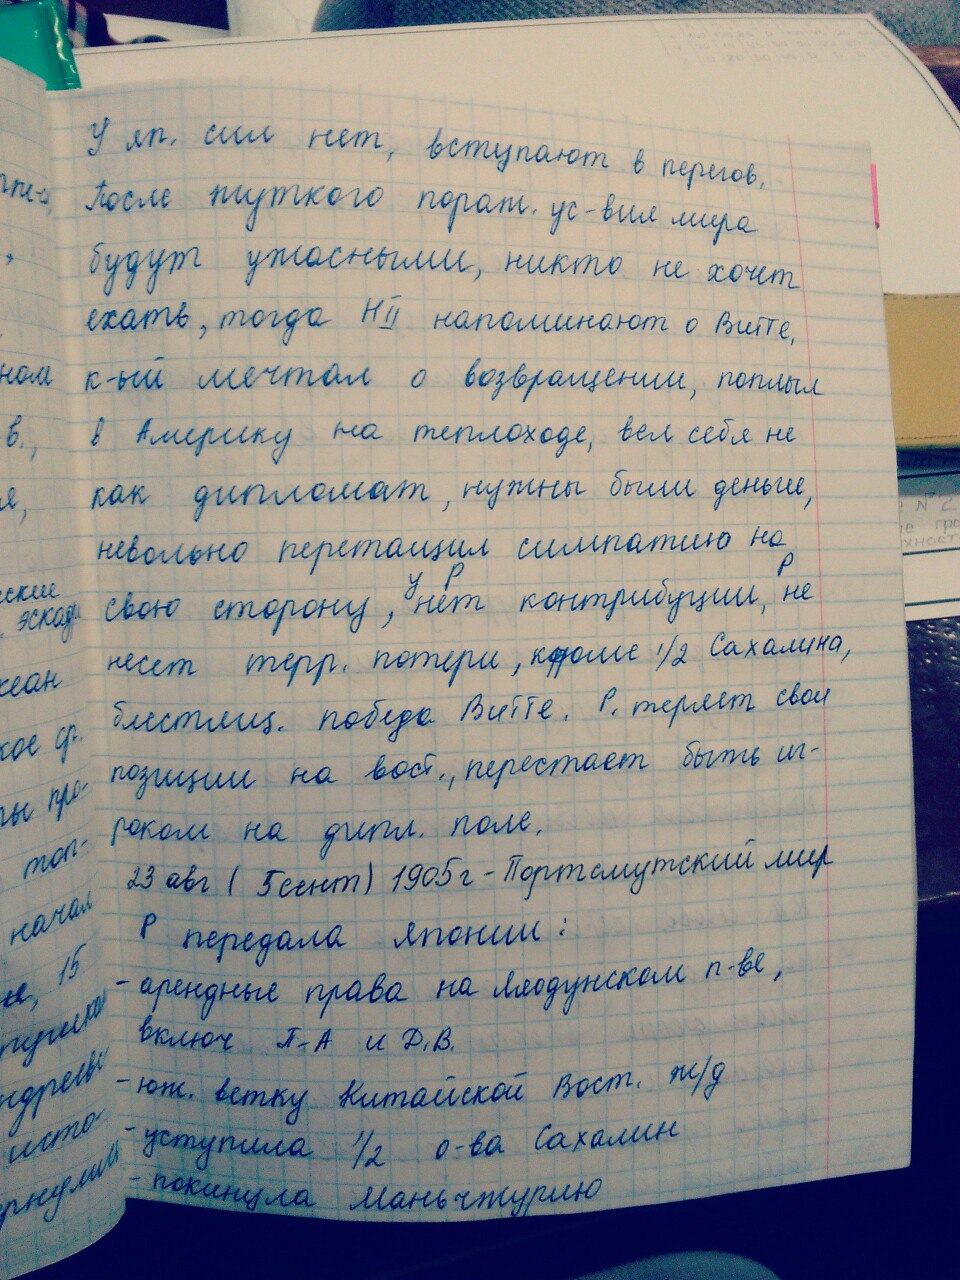 У яп. сил нет, вступают в перегов.
После жуткого пораж. ус-вия мира
будут ужасными, никто не хочет
ехать, тогда НII напоминают о Витте,
к-ый мечтал о возвращении, поплыл
в Америку на теплоходе, вел себя не
как дипломат, нужны были деньги,
невольно перетащил симпатию на
свою сторону, у Р нет контрибуции, Р не
несет терр. потери, кроме 1/2 Сахалина,
блестящ. победа Витте. Р. теряет свои
позиции на вост., перестает быть иг-
роком на дипл. поле.
23 авг (5 сент) 1905 г - Портсмутский мир
Р передала Японии:
- арендные права на Ляодунском п-ве,
включ П-А и Д.В.
- юж. ветку Китайской Вост. ж/д
- уступила 1/2 о-ва Сахалин
- покинула Маньчжурию
ном
в.,
я,
ские
эскад
кеан
кое ср.
ты про-
топ-
начал
15
исто-
№2